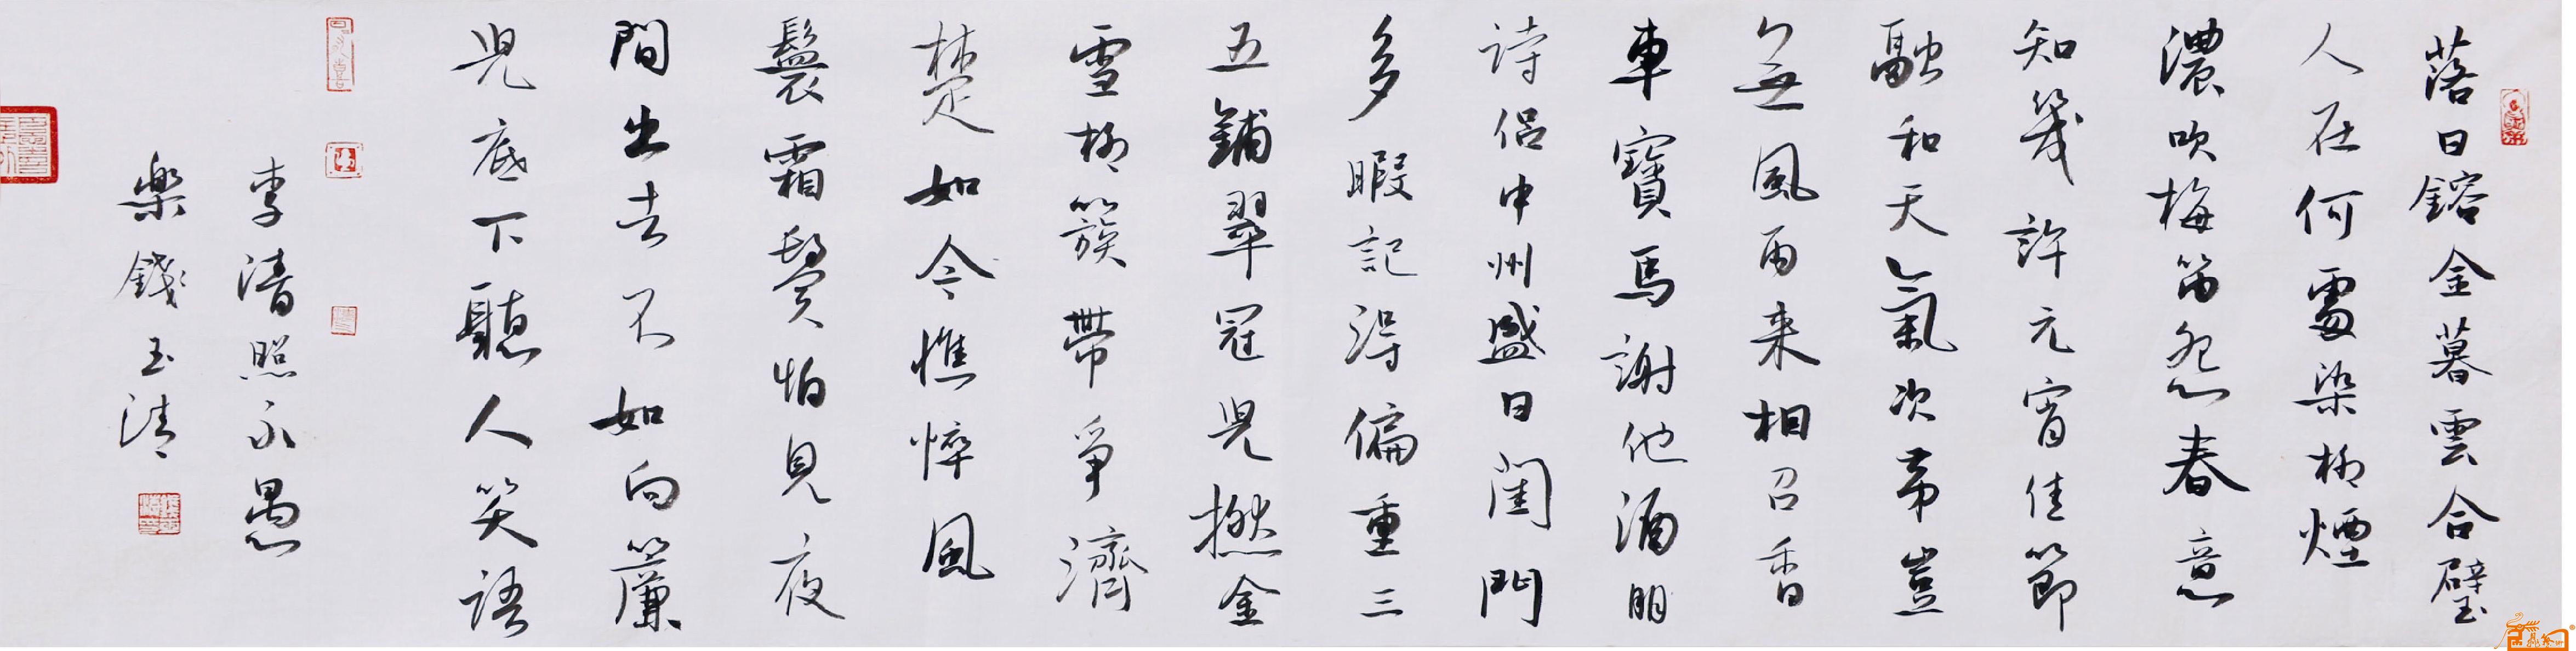 落日鎔金暮雲合璧
人在何處染柳煙
濃吹梅笛怨春意
知幾許元宵佳節
融和天氣次第豈
無風雨来相召香
車寶馬謝他酒朋
詩侣中州盛日閨門
多暇記得偏重三
五鋪翠冠児撚金
雪柳簇帶爭濟
楚如今憔悴風
鬟霜鬢怕見夜
間出去不如向簾
児底下聽人笑語
李清照永遇
樂錢玉清